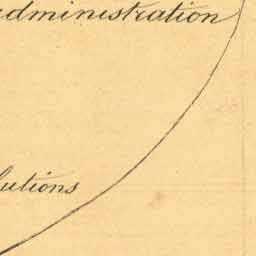 administration
lutions